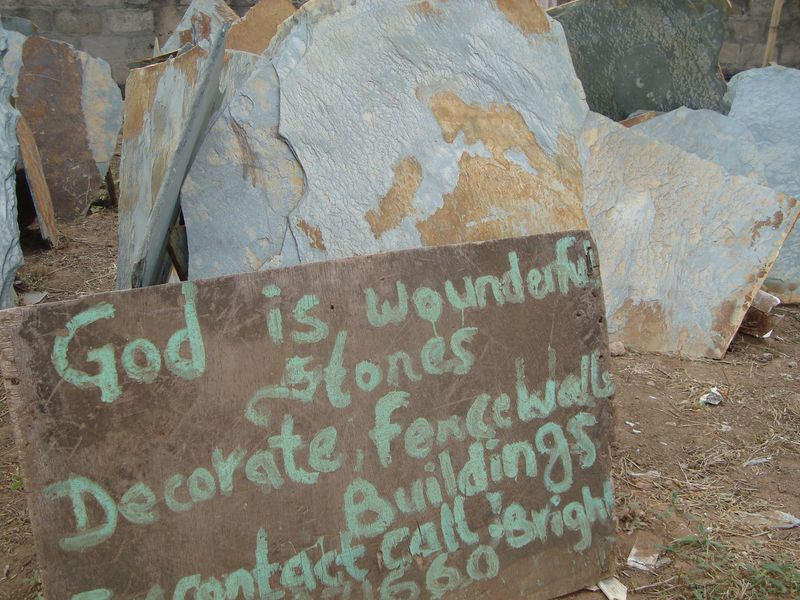 God is wounderful
stones
Decorate, fencewalls
Buildings
contact call: Bright
1660